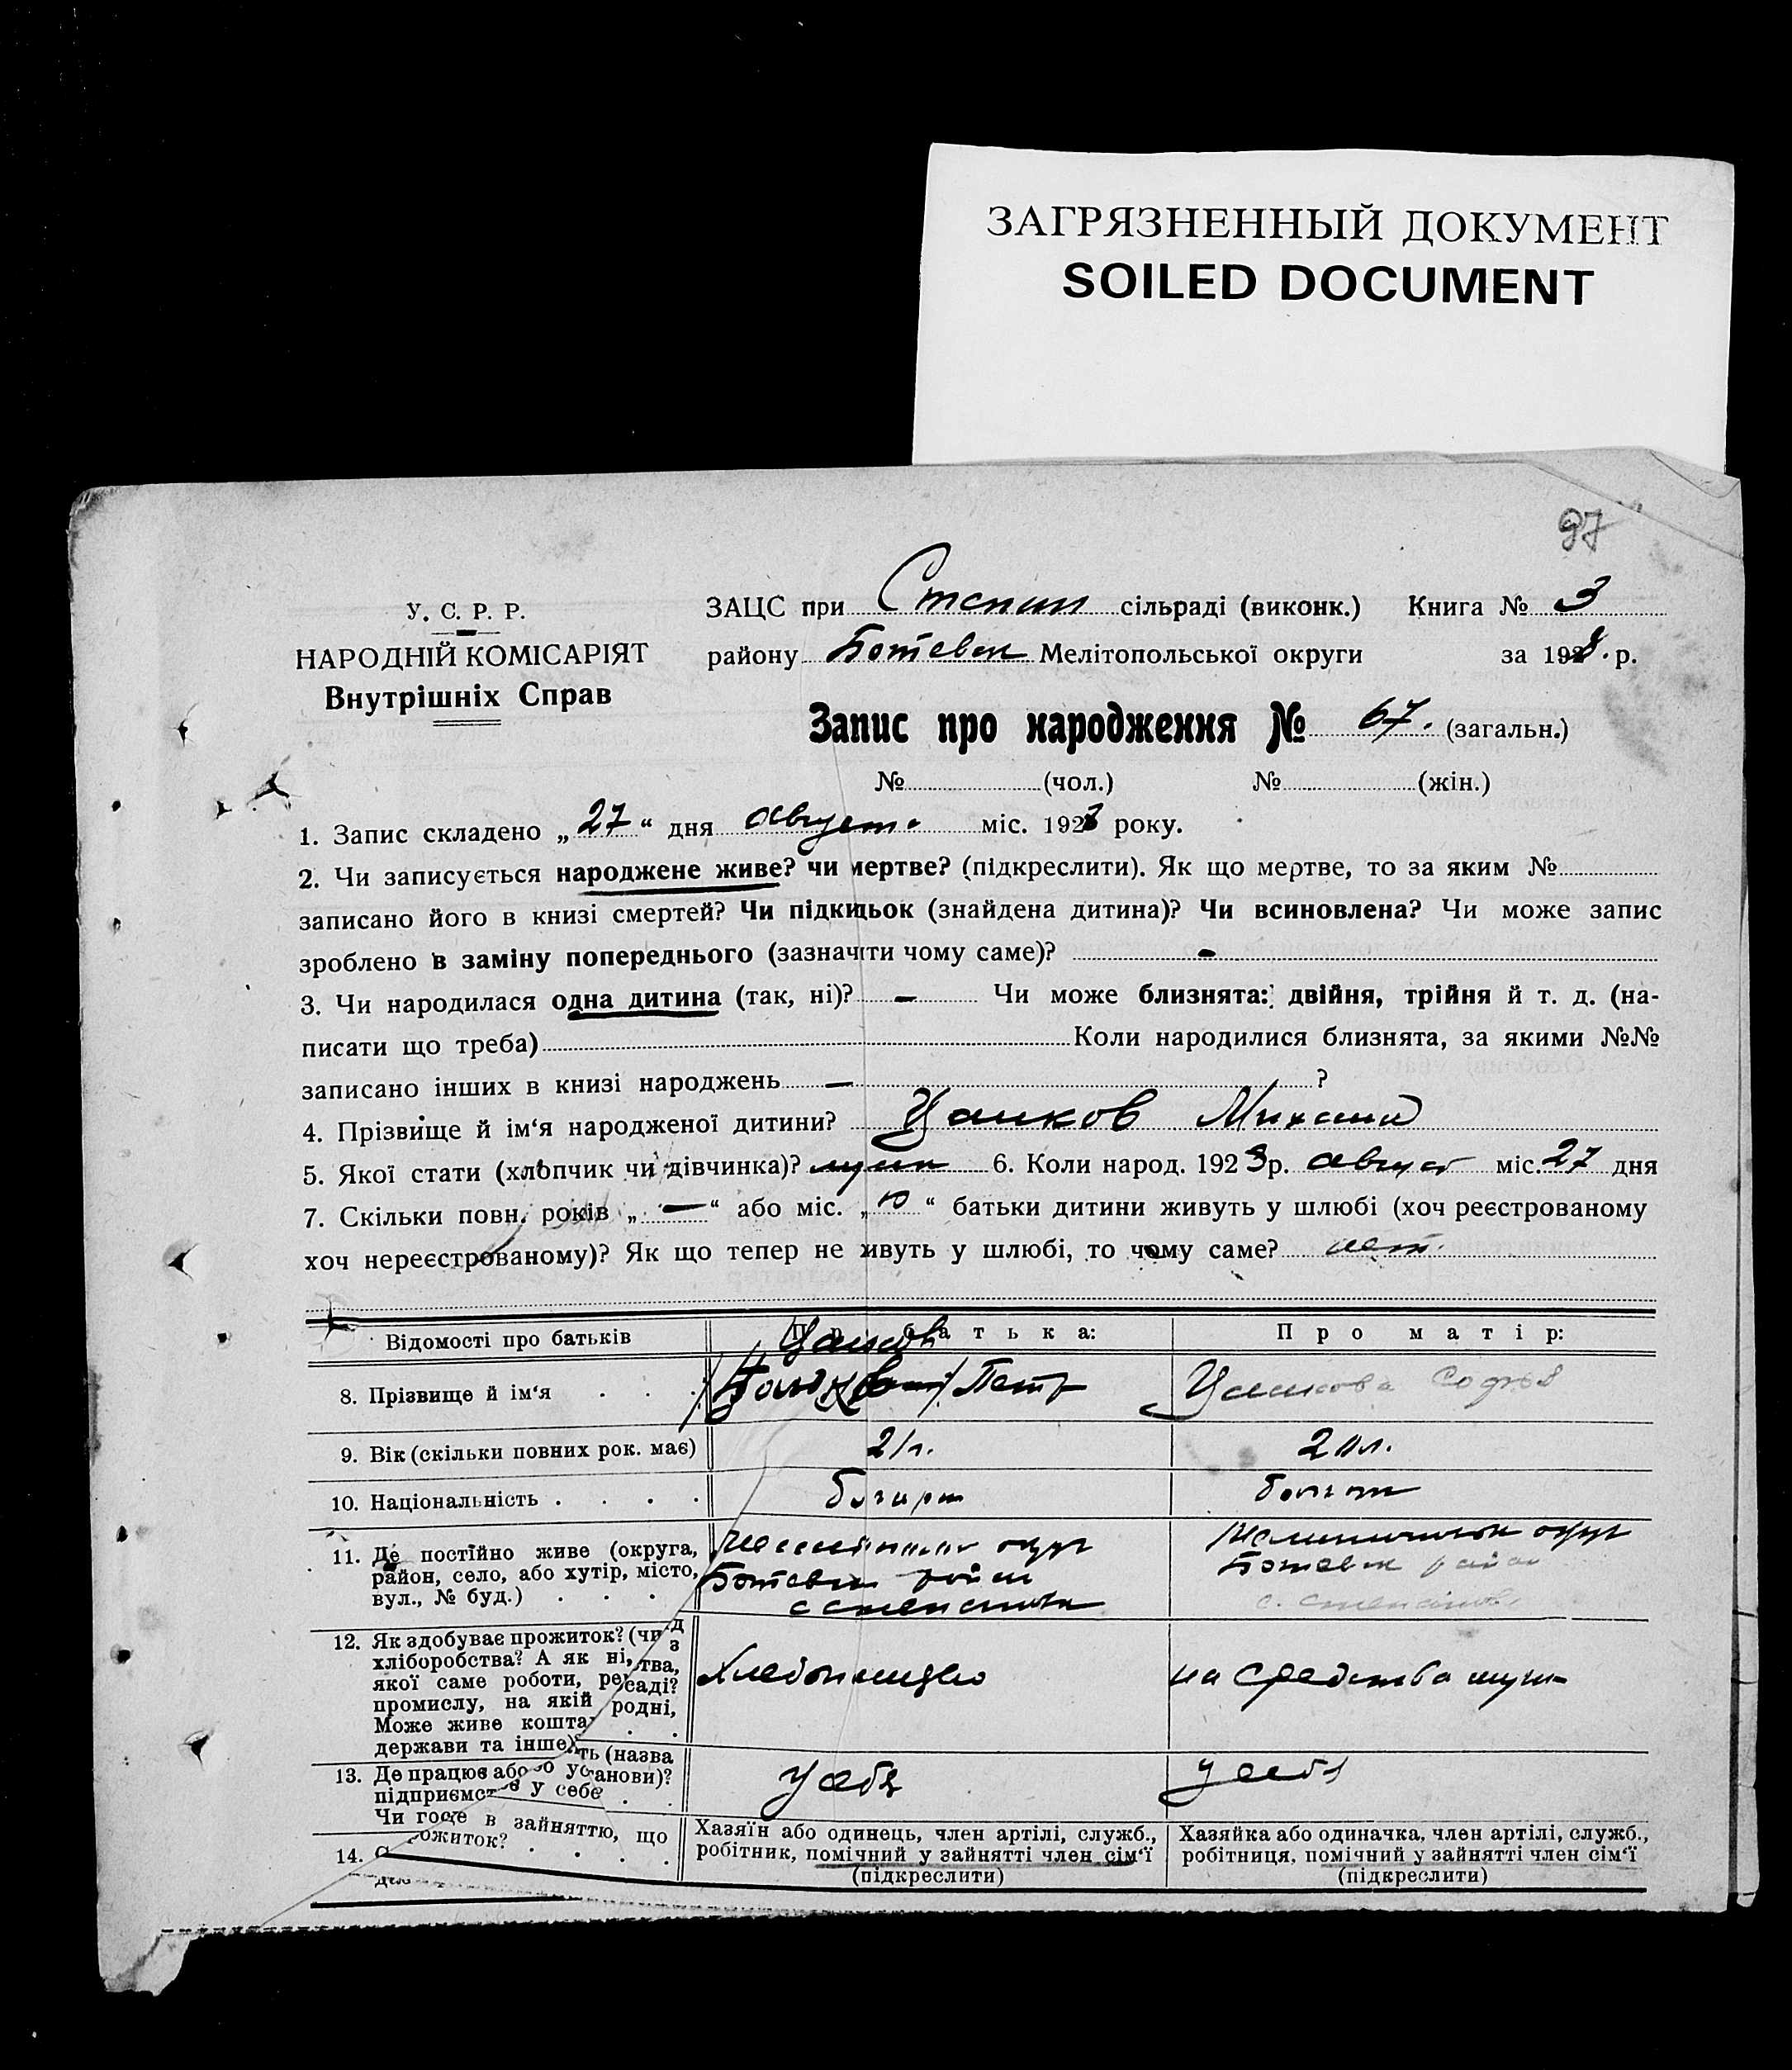 ЗАГРЯЗНЕННЫЙ ДОКУМЕНТ
SOILED DOCUMENT
97
У. С. Р. Р.
НАРОДНІЙ КОМІСАРІЯТ
Внутрішніх Справ
ЗАЦС при Степан сільраді (виконк.) Книга № 3
району Ботевск Мелітопольської округи за 1928. р.
Запис про народження № 67. (загальн.)
№ (чол.) № (жін.)
1. Запис складено „ 27 “ дня августа міс. 1928 року.
2. Чи записується народжене живе? чи мертве? (підкреслити). Як що мертве, то за яким №
записано його в книзі смертей? Чи підкидьок (знайдена дитина)? Чи всиновлена? Чи може запис
зроблено в заміну попереднього (зазначити чому саме)? -
3. Чи народилася одна дитина (так, ні)? — Чи може близнята: двійня, трійня й т. д. (на-
писати що треба) Коли народилися близнята, за якими №№
записано інших в книзі народжень — ?
4. Прізвище й ім‘я народженої дитини? Цанков Михаил
5. Якої стати (хлопчик чи дівчинка)? муж 6. Коли народ. 1928 р. август міс. 27 дня
7. Скільки повн. років „ — “ або міс. „ 10 “ батьки дитини живуть у шлюбі (хоч реєстрованому
хоч нереєстрованому)? Як що тепер не живуть у шлюбі, то чому саме?
Відомості про батьків Про батька: Про матір:
Цанков
8. Прізвище й ім‘я . . . Петр Цанкова Софья
9. Вік (скільки повних рок. має) 21 л. 20 л.
10. Національність . . . . болгарин болгарка
11. Де постійно живе (округа, округ округ
район, село, або хутір, місто, Ботевск район Ботевск район
вул., № буд.) . . . с Степановка с. Степановка
12. Як здобуває прожиток? (чи з
хліборобства? А як ні,
якої саме роботи, ре
промислу, на якій
Може живе кошта
держави та інше)
Хлебопашество на средства мужа
13. Де працює або
підприємст у себе
Чи госпо
у себя у себя
в зайняттю, що
14. Хазяїн або одинець, член артілі, служб., Хазяйка або одиначка, член артілі, служб.,
робітник, помічний у зайнятті член сім‘ї робітниця, помічний у зайнятті член сім‘ї
(підкреслити) (підкреслити)